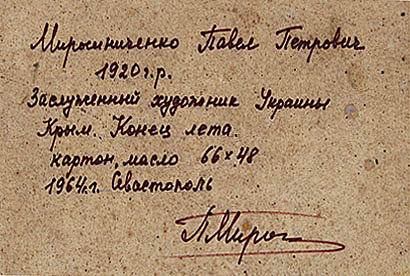 Мирошниченко Павел Петрович
1920 г.р.
Заслуженный художник Украины
Крым. Конец лета.
картон, масло 66×48
1964 г. Севастополь
П.Мирош